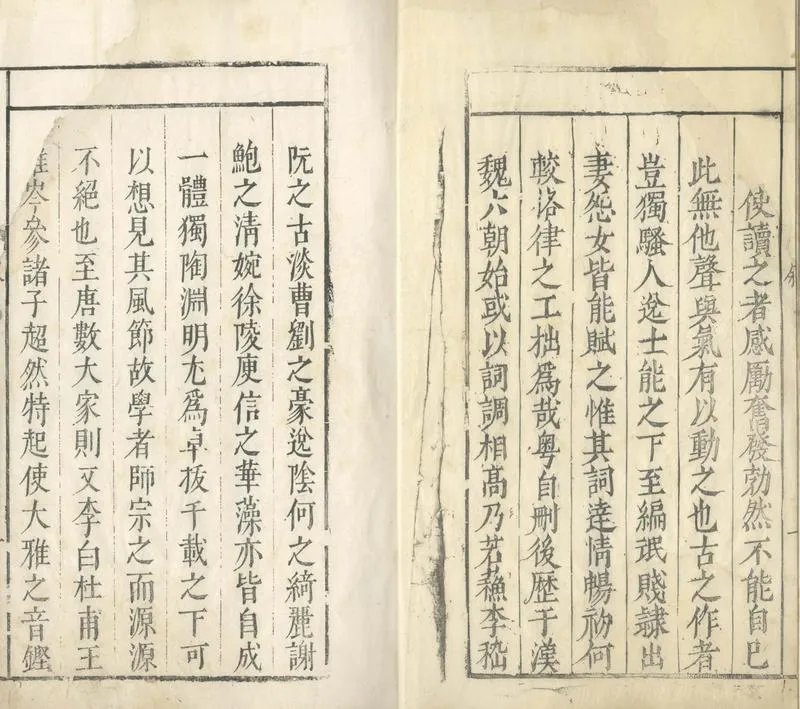 使讀之者感勵奮發勃然不能自已
此無他聲與氣有以動之也古之作者
豈獨騷人逸士能之下至編氓賤隸出
妻怨女皆能賦之惟其詞達情暢初何
較洛律之工拙爲哉粵自刪後歷于漢
魏六朝始或以詞調相高乃若蘓李嵇
阮之古淡曹劉之豪逸陰何之綺麗謝
鮑之淸婉徐陵庾信之華藻亦皆自成
一體獨陶淵明尤爲卓拔千載之下可
以想見其風節故學者師宗之而源源
不絕也至唐數大家則又李白杜甫王
維岑參諸子超然特起使大雅之音鏗